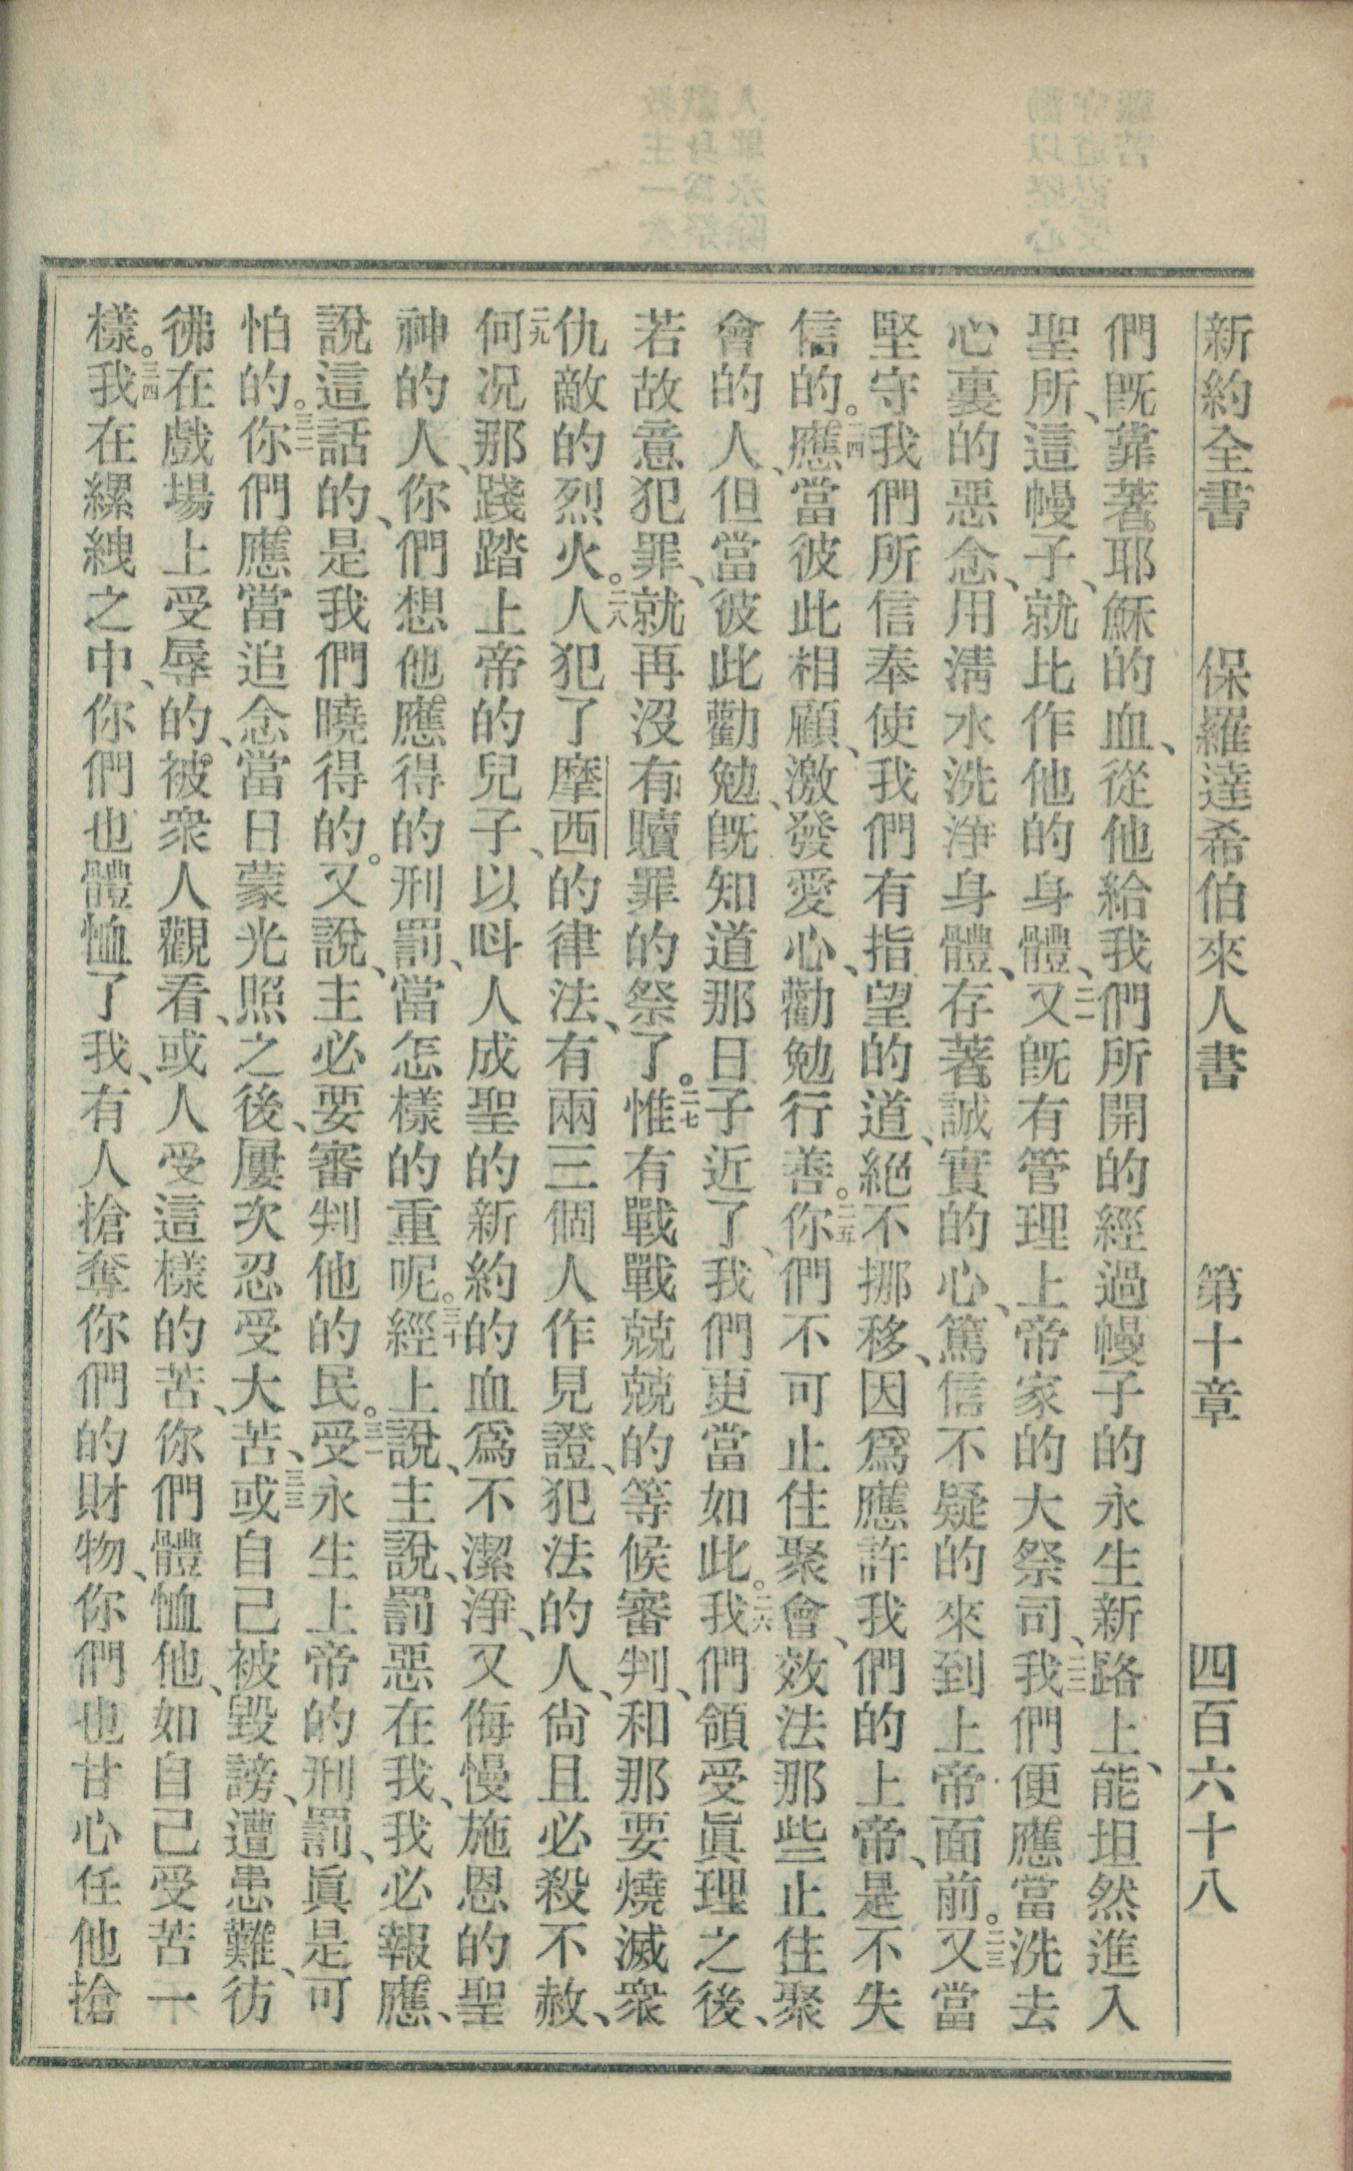 新約全書　保羅達希伯來人書　第十章　四百六十八
們旣靠著耶穌的血、從他給我們所開的經過幔子的永生新路上、能坦然進入
聖所、這幔子、就比作他的身體、二一又旣有管理上帝家的大祭司、二二我們便應當洗去
心裏的惡念、用淸水洗淨身體、存著誠實的心、篤信不疑的來到上帝面前。二三又當
堅守我們所信奉使我們有指望的道、絕不挪移、因爲應許我們的上帝、是不失
信的。二四應當彼此相顧、激發愛心、勸勉行善。二五你們不可止住聚會、效法那些止住聚
會的人、但當彼此勸勉、旣知道那日子近了、我們更當如此。二六我們領受眞理之後、
若故意犯罪、就再沒有贖罪的祭了。二七惟有戰戰兢兢的等候審判、和那要燒滅衆
仇敵的烈火。二八人犯了摩西的律法、有兩三個人作見證、犯法的人、尙且必殺不赦、
二九何况那踐踏上帝的兒子、以呌人成聖的新約的血爲不潔淨、又侮慢施恩的聖
神的人、你們想他應得的刑罰、當怎樣的重呢。三十經上說、主說、罰惡在我、我必報應、
說這話的、是我們曉得的。又說、主必要審判他的民。三一受永生上帝的刑罰、眞是可
怕的。三二你們應當追念當日蒙光照之後、屢次忍受大苦、三三或自己被毀謗、遭患難、彷
彿在戲場上受辱的、被衆人觀看、或人受這樣的苦、你們體恤他、如自己受苦一
樣。三四我在縲絏之中、你們也體恤了我、有人搶奪你們的財物、你們也甘心任他搶